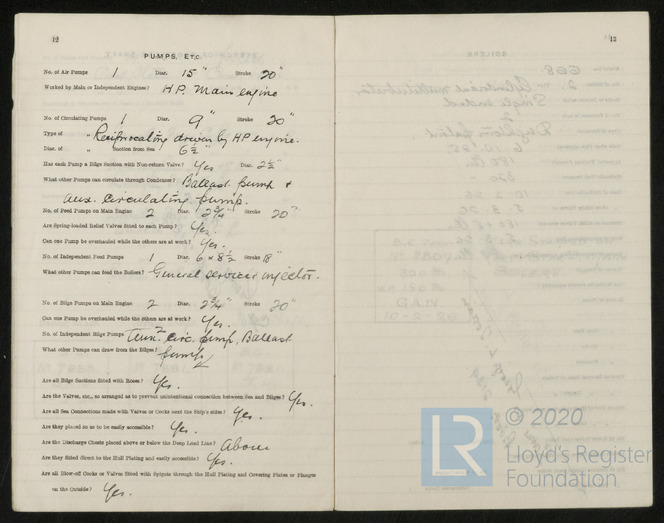 12
PUMPS, ETC.
No. of Air Pumps 1 Diar. 15" Stroke 20"
Worked by Main or Independent Engines? H.P. Main engine
No. of Circulating Pumps 1 Diar. 9" Stroke 20"
Type of " Reciprocating driven by HP engine.
Diar. of " Suction from Sea 6½"
Has each Pump a Bilge Suction with Non-return Valve? Yes Diar. 2½"
What other Pumps can circulate through Condenser? Ballast pump &
aux. circulating pump.
No. of Feed Pumps on Main Engine 2 Diar. 2¾" Stroke 20"
Are Spring-loaded Relief Valves fitted to each Pump? Yes.
Can one Pump be overhauled while the others are at work? Yes.
No. of Independent Feed Pumps 1 Diar. 6 x 8½ Stroke 18"
What other Pumps can feed the Boilers? General services injector.
No. of Bilge Pumps on Main Engine 2 Diar. 2¾" Stroke 20"
Can one Pump be overhauled while the others are at work? Yes.
No. of Independent Bilge Pumps 2
What other Pumps can draw from the Bilges? circ. pump, Ballast
pump
Are all Bilge Suctions fitted with Roses? Yes.
Are the Valves, etc., so arranged as to prevent unintentional connection between Sea and Bilges? Yes.
Are all Sea Connections made with Valves or Cocks next the Ship's sides? Yes.
Are they placed so as to be easily accessible? Yes.
Are the Discharge Chests placed above or below the Deep Load Line? Above
Are they fitted direct to the Hull Plating and easily accessible? Yes.
Are all Blow-off Cocks or Valves fitted with Spigots through the Hull Plating and Covering Plates or Flanges
on the Outside? Yes.
13
LR
© 2020
Lloyd's Register
Foundation